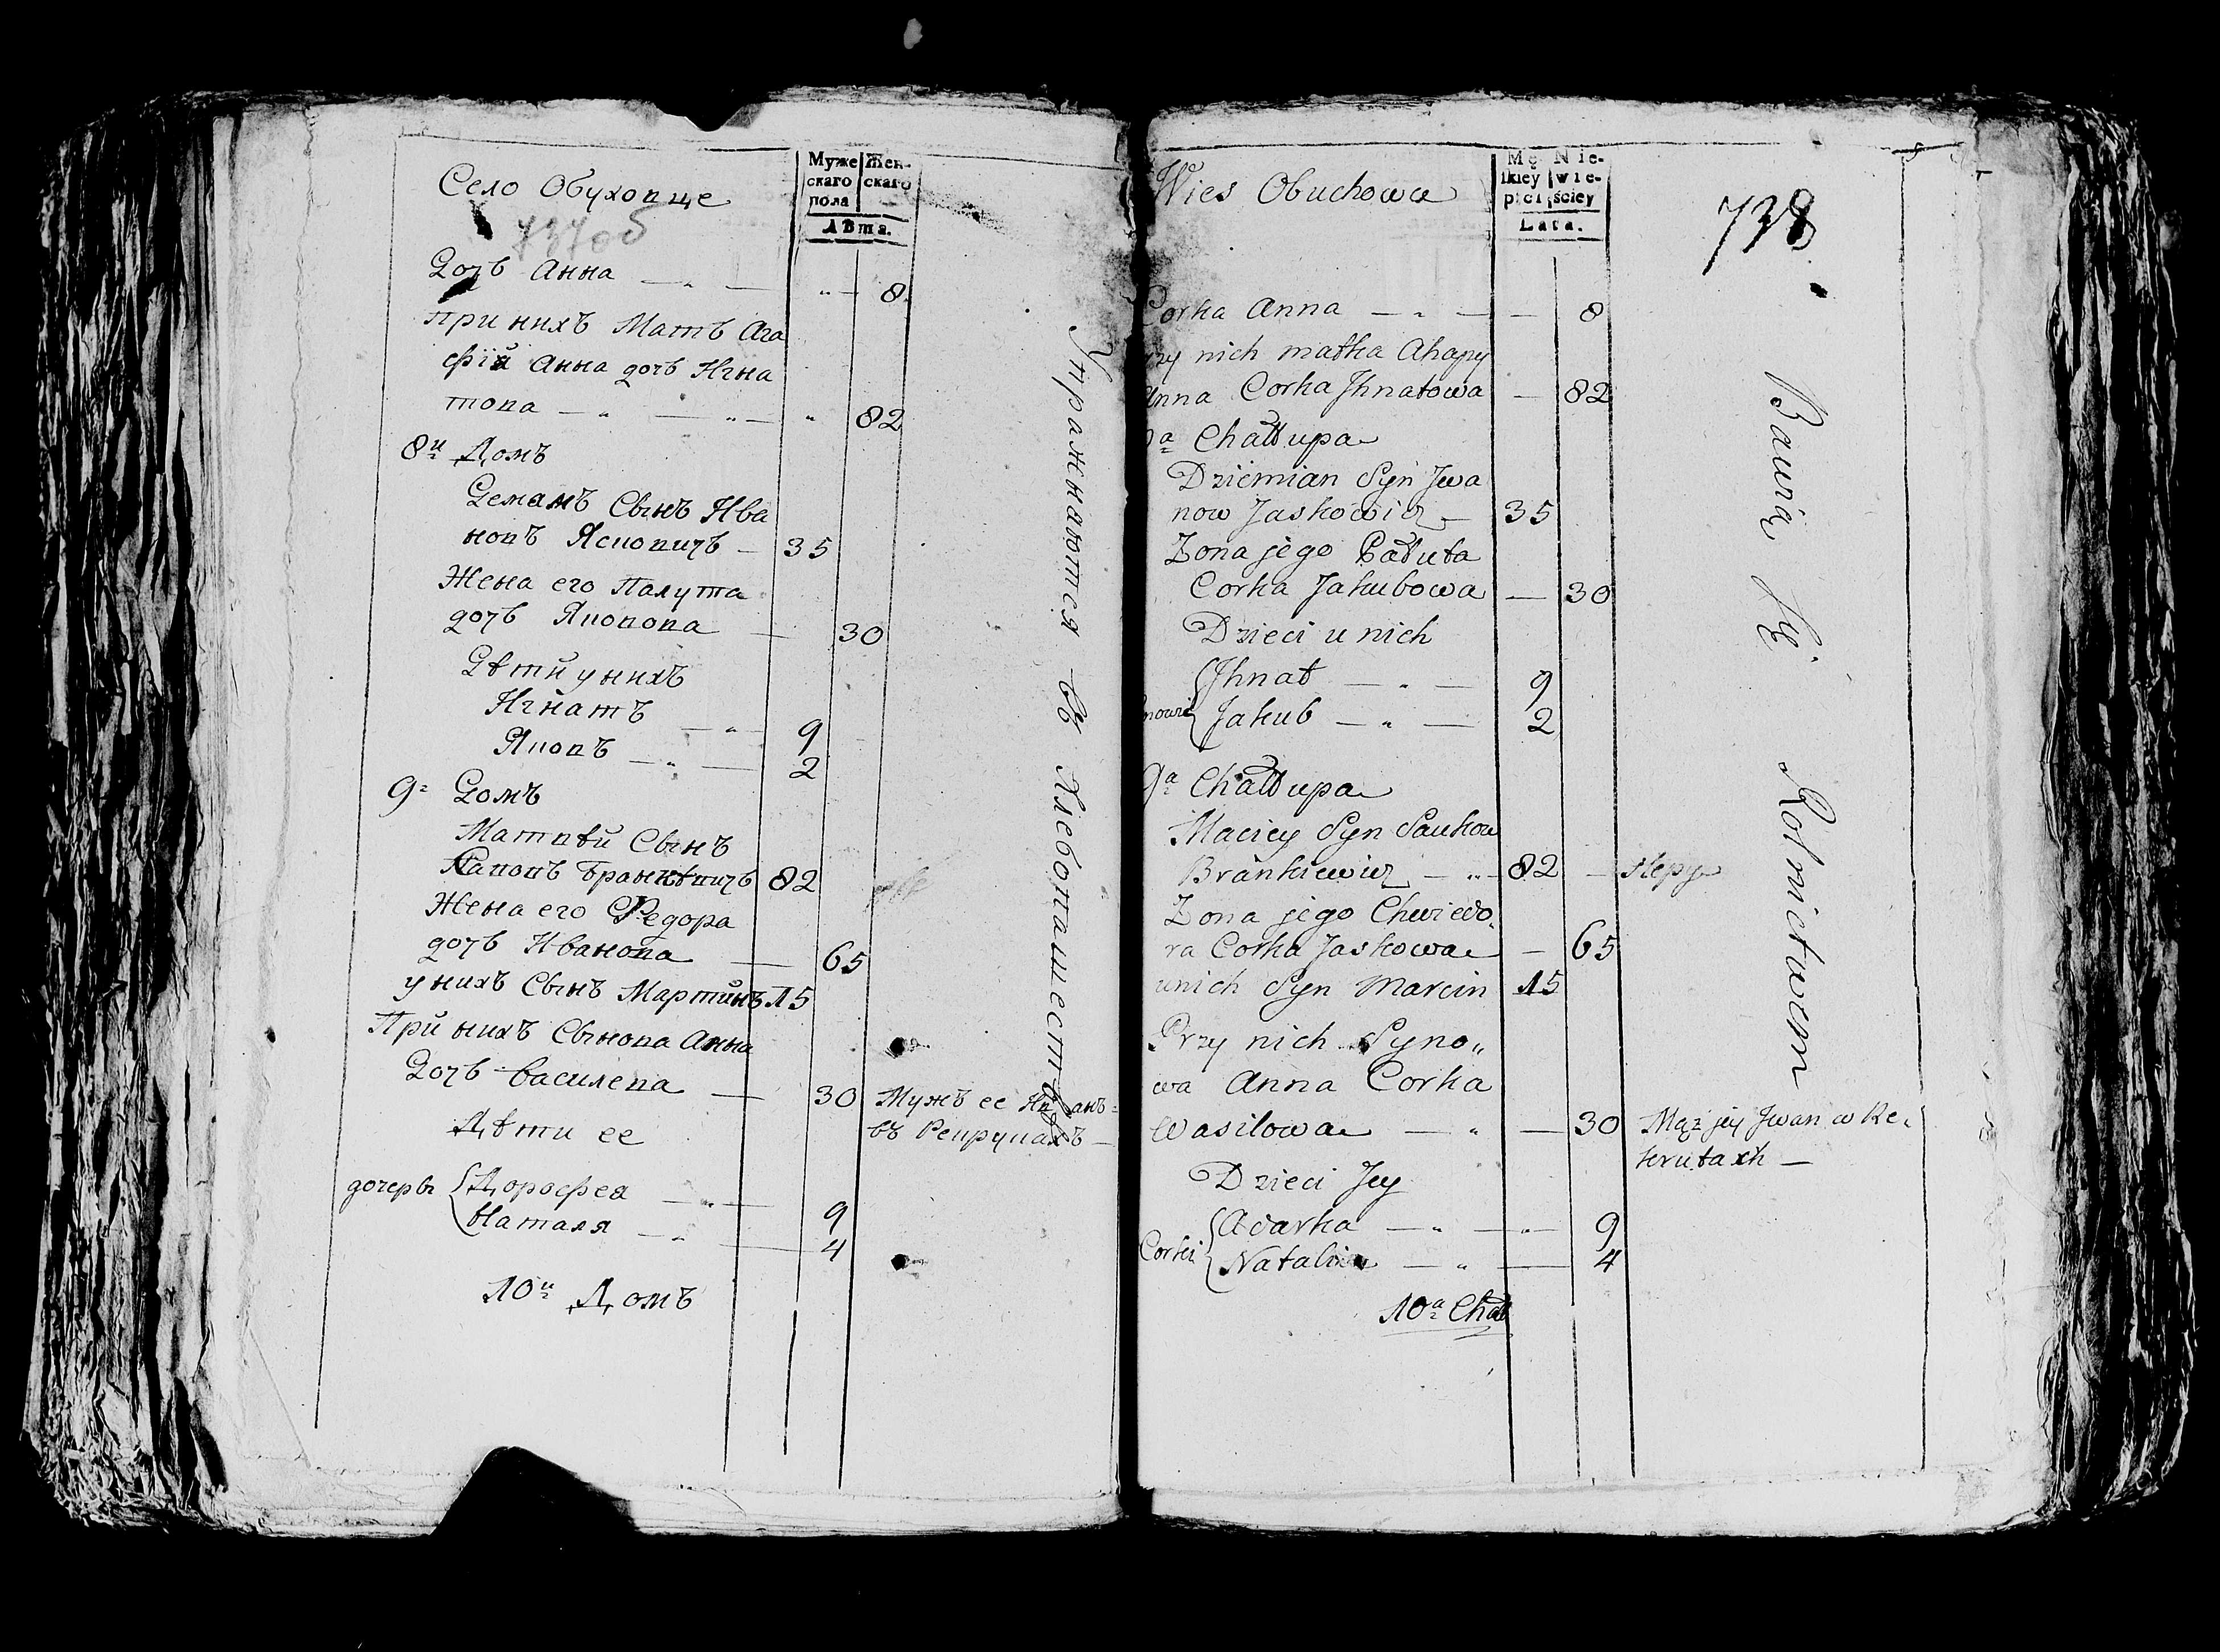 Село Обуховце
737об
Муже
скаго
пола
Жен-
скаго
Лѣта.
Дочь Анна — " — " — 8
При нихъ Мать Ага
фій Анна дочь Игна
това — " — " — " 82
8й Домъ
Деманъ Сынъ Ива
новъ Ясковичъ — 35
Жена его Палута
дочь Якопова — 30
Дѣти у нихъ
Игнатъ — " 9
Якопъ — " — 2
9: Домъ
Матвѣй Сынъ
Савовъ Бранкѣвичъ 82
Жена его Федора
дочь Иванова — 65
у нихъ Сынъ Мартинъ 15
При нихъ Сынова Анна
Дочь Василева — 30 Мужъ ее Иванъ
въ Рекрутахъ —
Дѣти ее
дочеры Дорофея — " — 9
Наталя — " — 4
10й Домъ
Упражнаются въ Хлебопашествѣ
Wies Obuchowce
Mę
ſkiey
płci
Nie-
wie-
ściey
Lata.
738
Corka Anna — " — — 8
rzy nich matka Ahapy
Anna Corka Jhnatowa — 82
a Chałłupa
Dziemian Syn Jwa
now Jaskowicz — 35
Zona jego Pałuta
Corka Jakubowa — 30
Dzieci u nich
Jhnat — " — 9
nowie Jakub — " — 2
9a Chałłupa
Maciey Syn Saukow
Brankiewicz — " — 82 — slepy
Zona jego Chwiedo
ra Corka Jaskowa — 65
unich Syn Marcin 15
Przy nich Syno"
wa Anna Corka
Wasilowa — " — 30 Mąz jey Jwan w Re
krutach —
Dzieci Jey
Adarka — " — " — 9
Corki Natalia — " — 4
10a Chał
Bawią się Rolnictwem